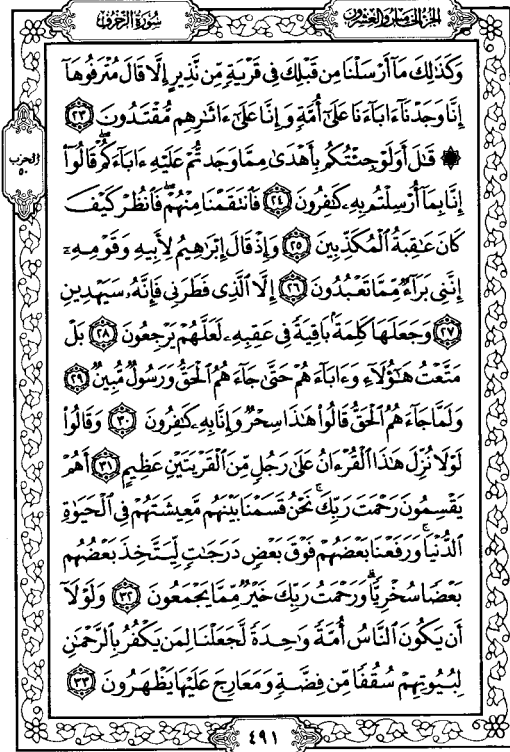 الجزء الخامس والعشرون
سورة الزخرف
وَكَذَٰلِكَ مَآ أَرْسَلْنَا مِن قَبْلِكَ فِي قَرْيَةٍ مِّن نَّذِيرٍ إِلَّا قَالَ مُتْرَفُوهَآ
إِنَّا وَجَدْنَآ ءَابَآءَنَا عَلَىٰٓ أُمَّةٍ وَإِنَّا عَلَىٰٓ ءَاثَٰرِهِم مُّقْتَدُونَ ٢٣
۞ قَٰلَ أَوَلَوْ جِئْتُكُم بِأَهْدَىٰ مِمَّا وَجَدتُّمْ عَلَيْهِ ءَابَآءَكُمْ ۖ قَالُوٓا۟
إِنَّا بِمَآ أُرْسِلْتُم بِهِۦ كَٰفِرُونَ ٢٤ فَٱنتَقَمْنَا مِنْهُمْ ۖ فَٱنظُرْ كَيْفَ
كَانَ عَٰقِبَةُ ٱلْمُكَذِّبِينَ ٢٥ وَإِذْ قَالَ إِبْرَٰهِيمُ لِأَبِيهِ وَقَوْمِهِۦٓ
إِنَّنِي بَرَآءٌ مِّمَّا تَعْبُدُونَ ٢٦ إِلَّا ٱلَّذِي فَطَرَنِي فَإِنَّهُۥ سَيَهْدِينِ
٢٧ وَجَعَلَهَا كَلِمَةًۢ بَاقِيَةً فِي عَقِبِهِۦ لَعَلَّهُمْ يَرْجِعُونَ ٢٨ بَلْ
مَتَّعْتُ هَٰٓؤُلَآءِ وَءَابَآءَهُمْ حَتَّىٰ جَآءَهُمُ ٱلْحَقُّ وَرَسُولٌ مُّبِينٌ ٢٩
وَلَمَّا جَآءَهُمُ ٱلْحَقُّ قَالُوا۟ هَٰذَا سِحْرٌ وَإِنَّا بِهِۦ كَٰفِرُونَ ٣٠ وَقَالُوا۟
لَوْلَا نُزِّلَ هَٰذَا ٱلْقُرْءَانُ عَلَىٰ رَجُلٍ مِّنَ ٱلْقَرْيَتَيْنِ عَظِيمٍ ٣١ أَهُمْ
يَقْسِمُونَ رَحْمَتَ رَبِّكَ ۚ نَحْنُ قَسَمْنَا بَيْنَهُم مَّعِيشَتَهُمْ فِي ٱلْحَيَوٰةِ
ٱلدُّنْيَا ۚ وَرَفَعْنَا بَعْضَهُمْ فَوْقَ بَعْضٍ دَرَجَٰتٍ لِّيَتَّخِذَ بَعْضُهُم
بَعْضًا سُخْرِيًّا ۗ وَرَحْمَتُ رَبِّكَ خَيْرٌ مِّمَّا يَجْمَعُونَ ٣٢ وَلَوْلَآ
أَن يَكُونَ ٱلنَّاسُ أُمَّةً وَٰحِدَةً لَّجَعَلْنَا لِمَن يَكْفُرُ بِٱلرَّحْمَٰنِ
لِبُيُوتِهِمْ سُقُفًا مِّن فِضَّةٍ وَمَعَارِجَ عَلَيْهَا يَظْهَرُونَ ٣٣
الحزب
٥٠
٤٩١